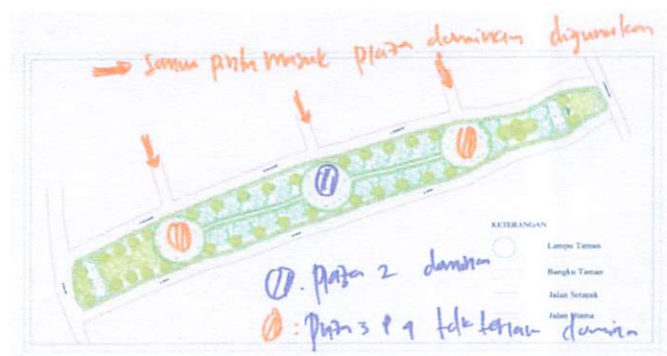 → semua pintu masuk plaza dominan digunakan
KETERANGAN
Lampu Taman
Bangku Taman
Jalan Setapak
Jalan Utama
: plaza 2 dominan
: plaza 3 & 4 tdk terlalu dominan